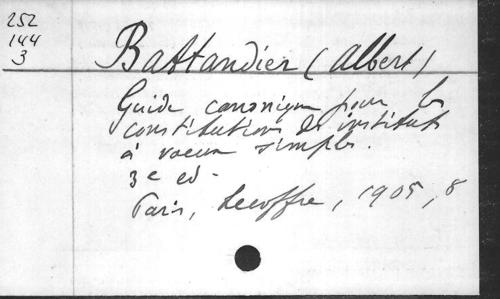 252
144
3
Battandier (Albert)
Guide canonique pour les
constitutions des instituts
à voeux simples.
3e ed.
Paris, Lecoffre, 1905, 8